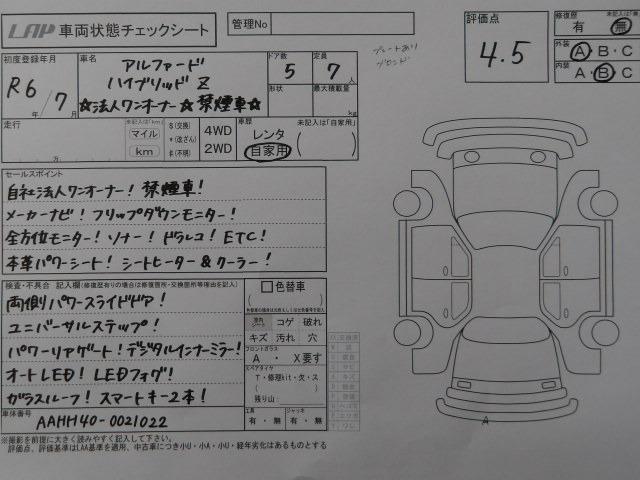 LAP 車両状態チェックシート
管理No
プレートあり
評価点
4.5
修復歴
有 ・ 無
外装
A・B・C
内装
A・B・C
初度登録年月
R6年/7月
車名
アルファード
ハイブリッド Z
☆法人ワンオーナー☆禁煙車☆
ドア数
5
定員
7人
形状
最大積載量
kg
走行
万
未記入は「km」
マイル
km
$(交換)
*(改ざん)
#(不明)
4WD
2WD
車歴
未記入は「自家用」
レンタ
自家用
セールスポイント
自社法人ワンオーナー! 禁煙車!
メーカーナビ! フリップダウンモニター!
全方位モニター! ソナー! ドラレコ! ETC!
本革パワーシート! シートヒーター&クーラー!
検査・不具合 記入欄(修復歴有りの場合は修復箇所・交換箇所等理由を記入)
両側パワースライドドア!
ユニバーサルステップ!
パワーリアゲート! デジタルインナーミラー!
オートLED! LEDフォグ!
ガラスルーフ! スマートキー2本!
色替車
コゲ 破れ
キズ 汚れ 穴
フロントガラス
A ・ X要す
スペアタイヤ
T・修理kit・欠・ス
残り山:
工具
有・無
ジャッキ
有・無
車体番号
AAHH40-0021022
A
※撮影を前提に大きく読みやすく記入して下さい。
評価点、評価基準はLAA基準を適用、中古車につき小U・小A・小U・経年劣化はあるものとする